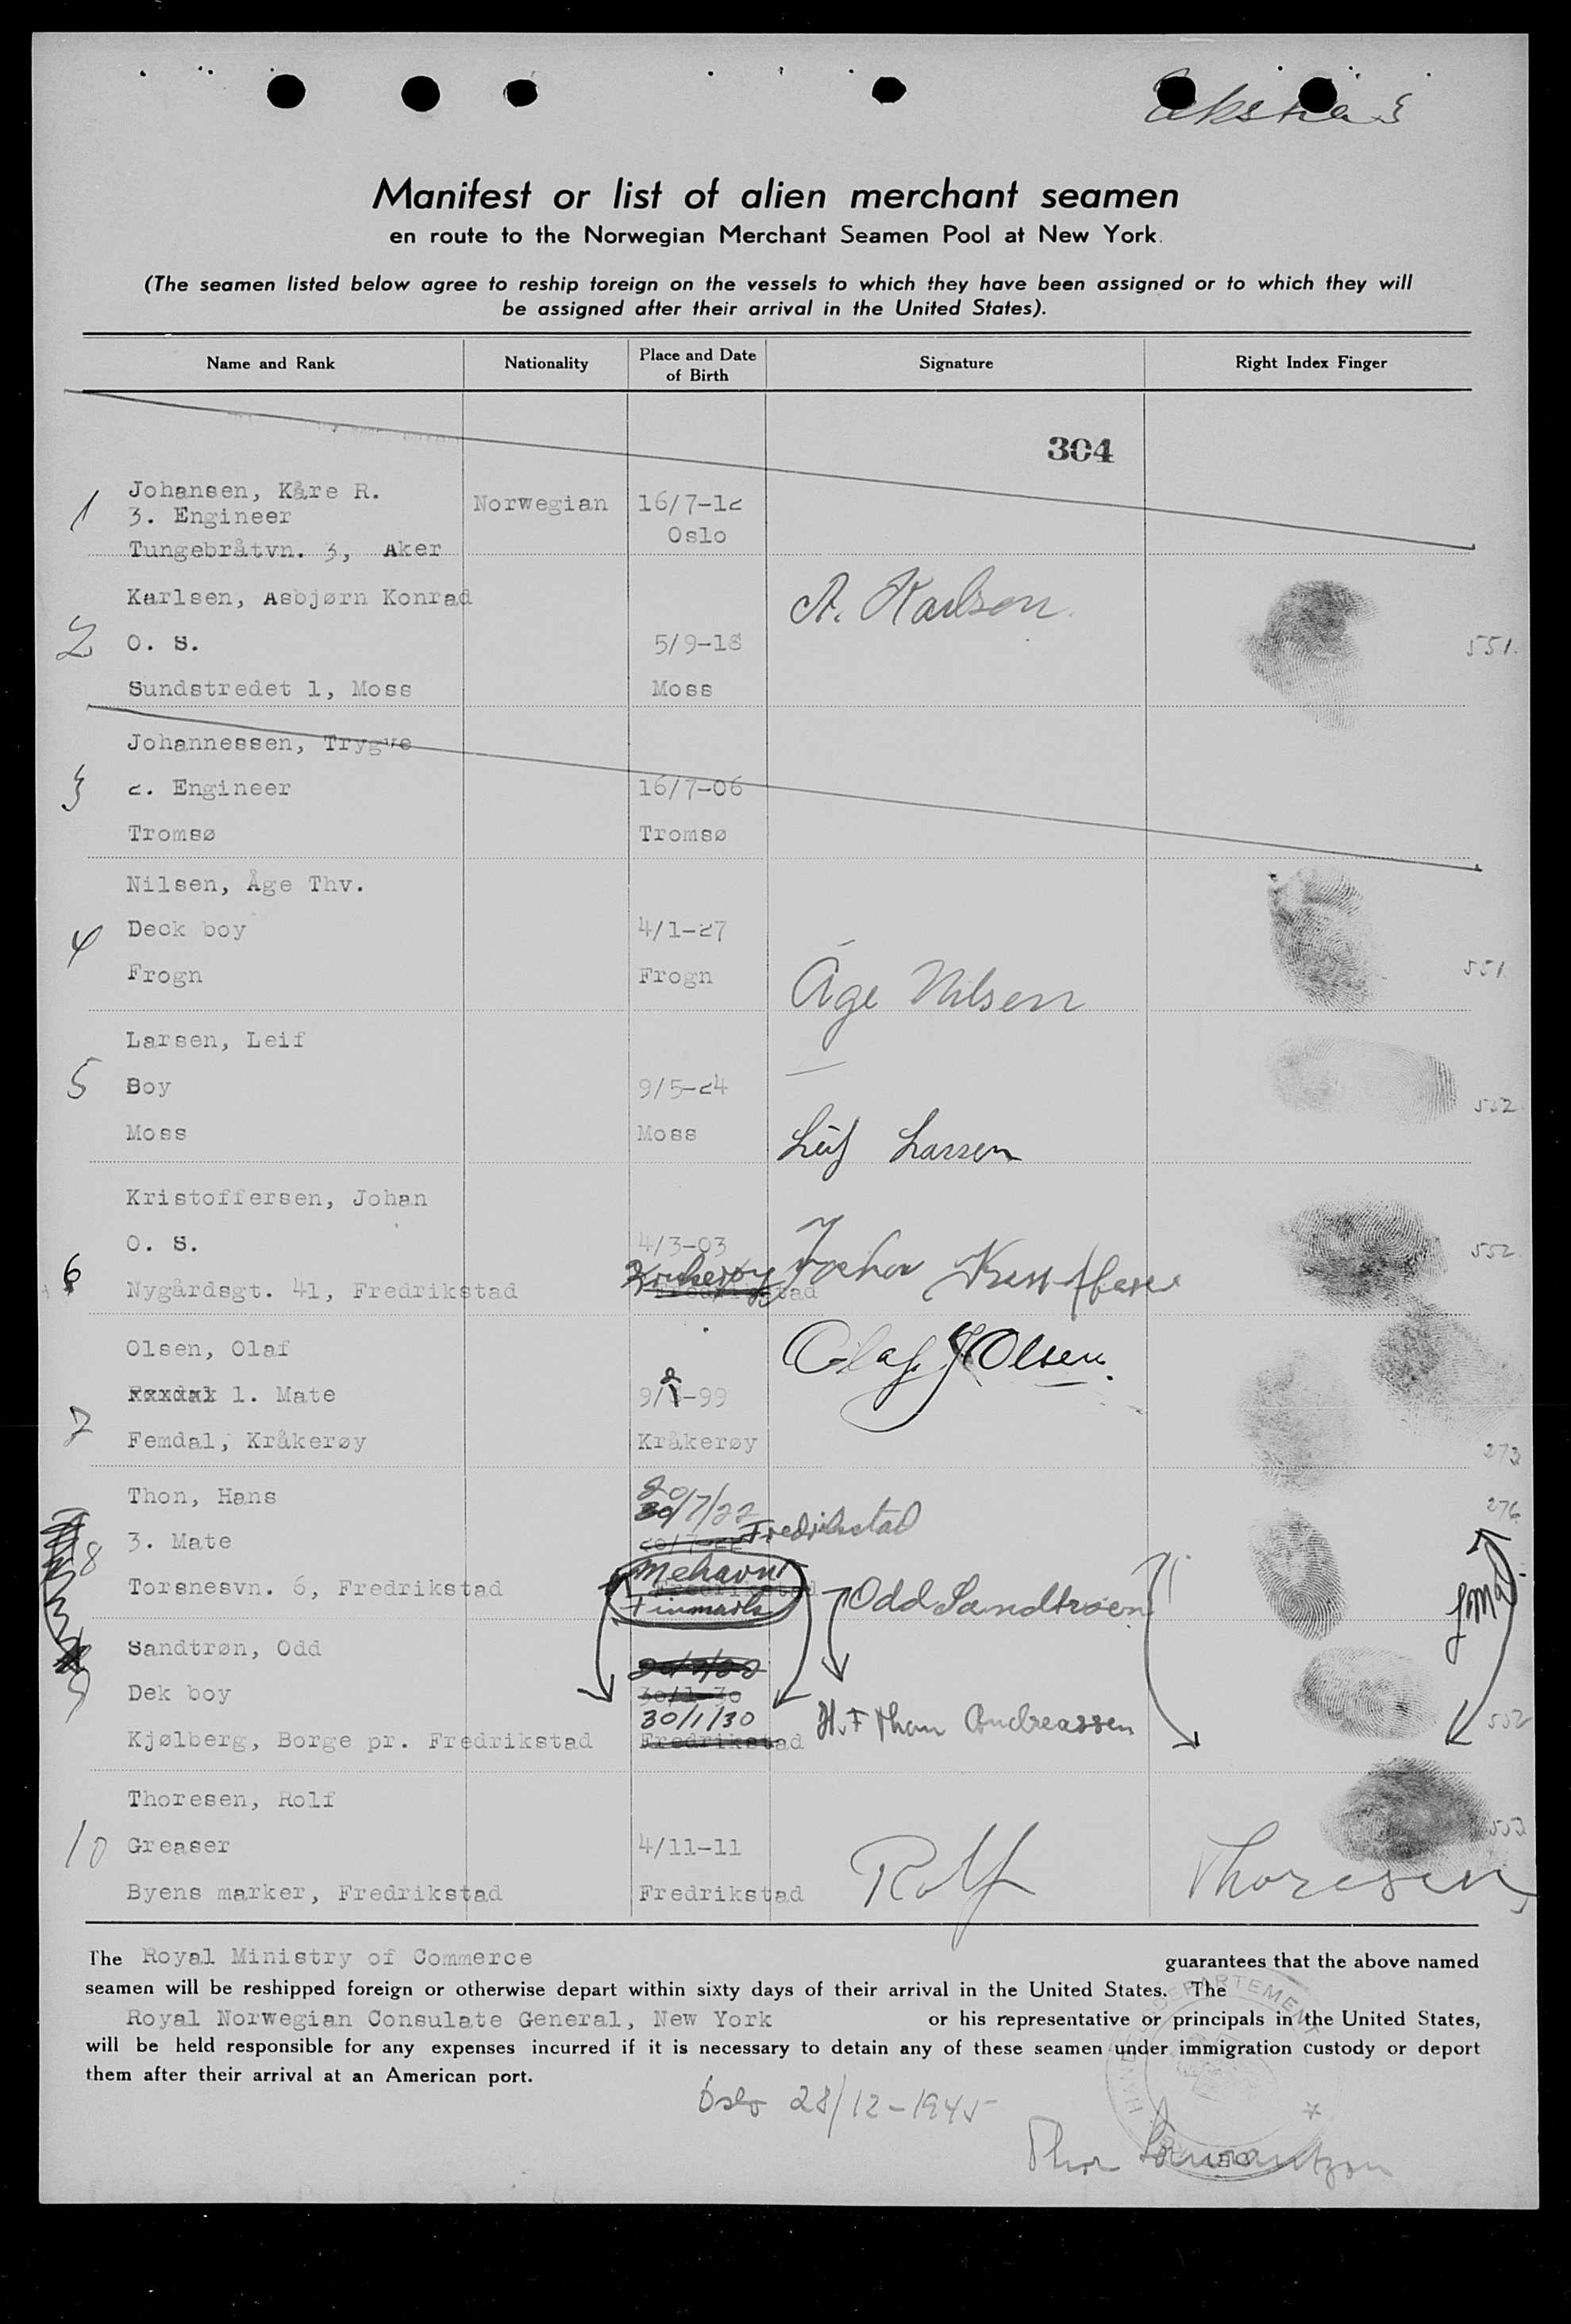 Manifest or list of alien merchant seamen
en route to the Norwegian Merchant Seamen Pool at New York.
(The seamen listed below agree to reship foreign on the vessels to which they have been assigned or to which they will
be assigned after their arrival in the United States).
Name and Rank Nationality Place and Date of Birth Signature Right Index Finger
304
1 Johansen, Kåre R. Norwegian 16/7-12
3. Engineer
Oslo
Tungebråtvn. 3, Aker
Karlsen, Asbjørn Konrad A. Karlsen
2 O. S. 5/9-18 551.
Sundstredet 1, Moss Moss
Johannessen, Trygve
3 2. Engineer 16/7-06
Tromsø Tromsø
Nilsen, Åge Thv.
4 Deck boy 4/1-27
Frogn Frogn Åge Nilsen 551
Larsen, Leif
5 Boy 9/5-24 552
Moss Moss Leif Larsen
Kristoffersen, Johan
O. S. 4/3-03 Johan 552
6 Nygårdsgt. 41, Fredrikstad Fredrikstad
Olsen, Olaf Olaf Olsen.
1. Mate 9/-99
7 Femdal, Kråkerøy Kråkerøy 273
Thon, Hans 20/7/22 276
8 3. Mate 20/7-22 Fredrikstad
Torsnesvn. 6, Fredrikstad Mehavn Fredrikstad Finmark Odd Sandtrøen
Sandtrøn, Odd
9 Dek boy 30/1-30
30/1/30 H. F Thon Andreassen 552
Kjølberg, Borge pr. Fredrikstad Fredrikstad
Thoresen, Rolf
10 Greaser 4/11-11 Rolf Thoresen 553
Byens marker, Fredrikstad Fredrikstad
The Royal Ministry of Commerce guarantees that the above named
seamen will be reshipped foreign or otherwise depart within sixty days of their arrival in the United States. The
Royal Norwegian Consulate General, New York or his representative or principals in the United States,
will be held responsible for any expenses incurred if it is necessary to detain any of these seamen under immigration custody or deport
them after their arrival at an American port.
Oslo 28/12-1945